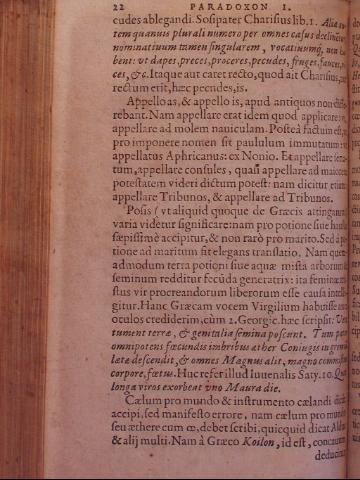 22 PARADOXON I.
cudes ablegandi. Sosipater Charisius lib. 1. Alia au-
tem quanuis plurali numero per omnes casus declinetur
nominatiuum tamen singularem, vocatiuumq́; non ha-
bent: vt dapes, preces, proceres, pecudes, fruges, fauces,
ces, &c. Itaque aut caret recto, quod ait Charisius,
rectum erit, hæc pecudes, is.
Appello as, & appello is, apud antiquos non diffe-
rebant. Nam appellare erat idem quod applicare:
appellare ad molem nauiculam. Posteà factum est,
pro imponere nomen sit paululum immutatum:
appellatus Aphricanus: ex Nonio. Et appellare sena-
tum, appellare consules, quasi appellare ad maiorem
potestatem videri dictum potest: nam dicitur etiam
appellare Tribunos, & appellare ad Tribunos.
Posis (vt aliquid quoque de Græcis attingam)
varia videtur significare: nam pro potione siue haustu
sæpissimè accipitur, & non rarò pro marito. Sed à po-
tione ad maritum fit elegans translatio. Nam quem-
admodum terra potioni siue aquæ mista arborum
seminum redditur fecũda generatrix: ita femina
stus vir procreandorum liberorum esse causa intelli-
gitur. Hanc Græcam vocem Virgilium habuisse ante
oculos crediderim cùm 2. Georgic. hæc scripsit: Ver
tument terræ, & genitalia semina poscunt. Tum pater
omnipotens fœcundis imbribus æther Coniugis in gremium
lætæ descendit, & omnes Magnus alit, magno commixtus
corpore, fœtus. Huc refer illud Iuuenalis Saty. 10. Quot
longa viros exorbeat vno Maura die.
Cælum pro mundo & instrumento cælandi dicitur
accipi, sed manifesto errore, nam cælum pro mundo
seu æthere cum œ, debet scribi, quicquid dicat Aldus
& alij multi. Nam à Græco Koilon, id est, concauum
deducitur